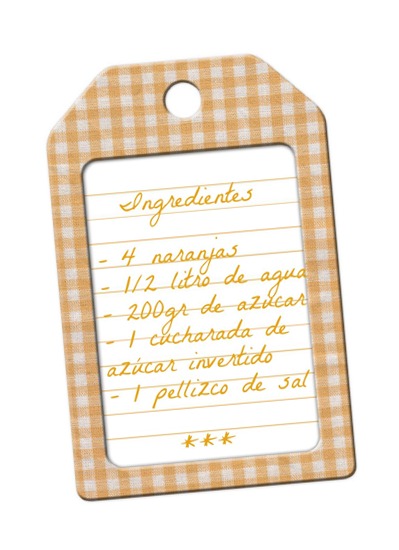 Ingredientes
- 4 naranjas
- 1/2 litro de agua
- 200gr de azúcar
- 1 cucharada de
azúcar invertido
- 1 pellizco de sal
***